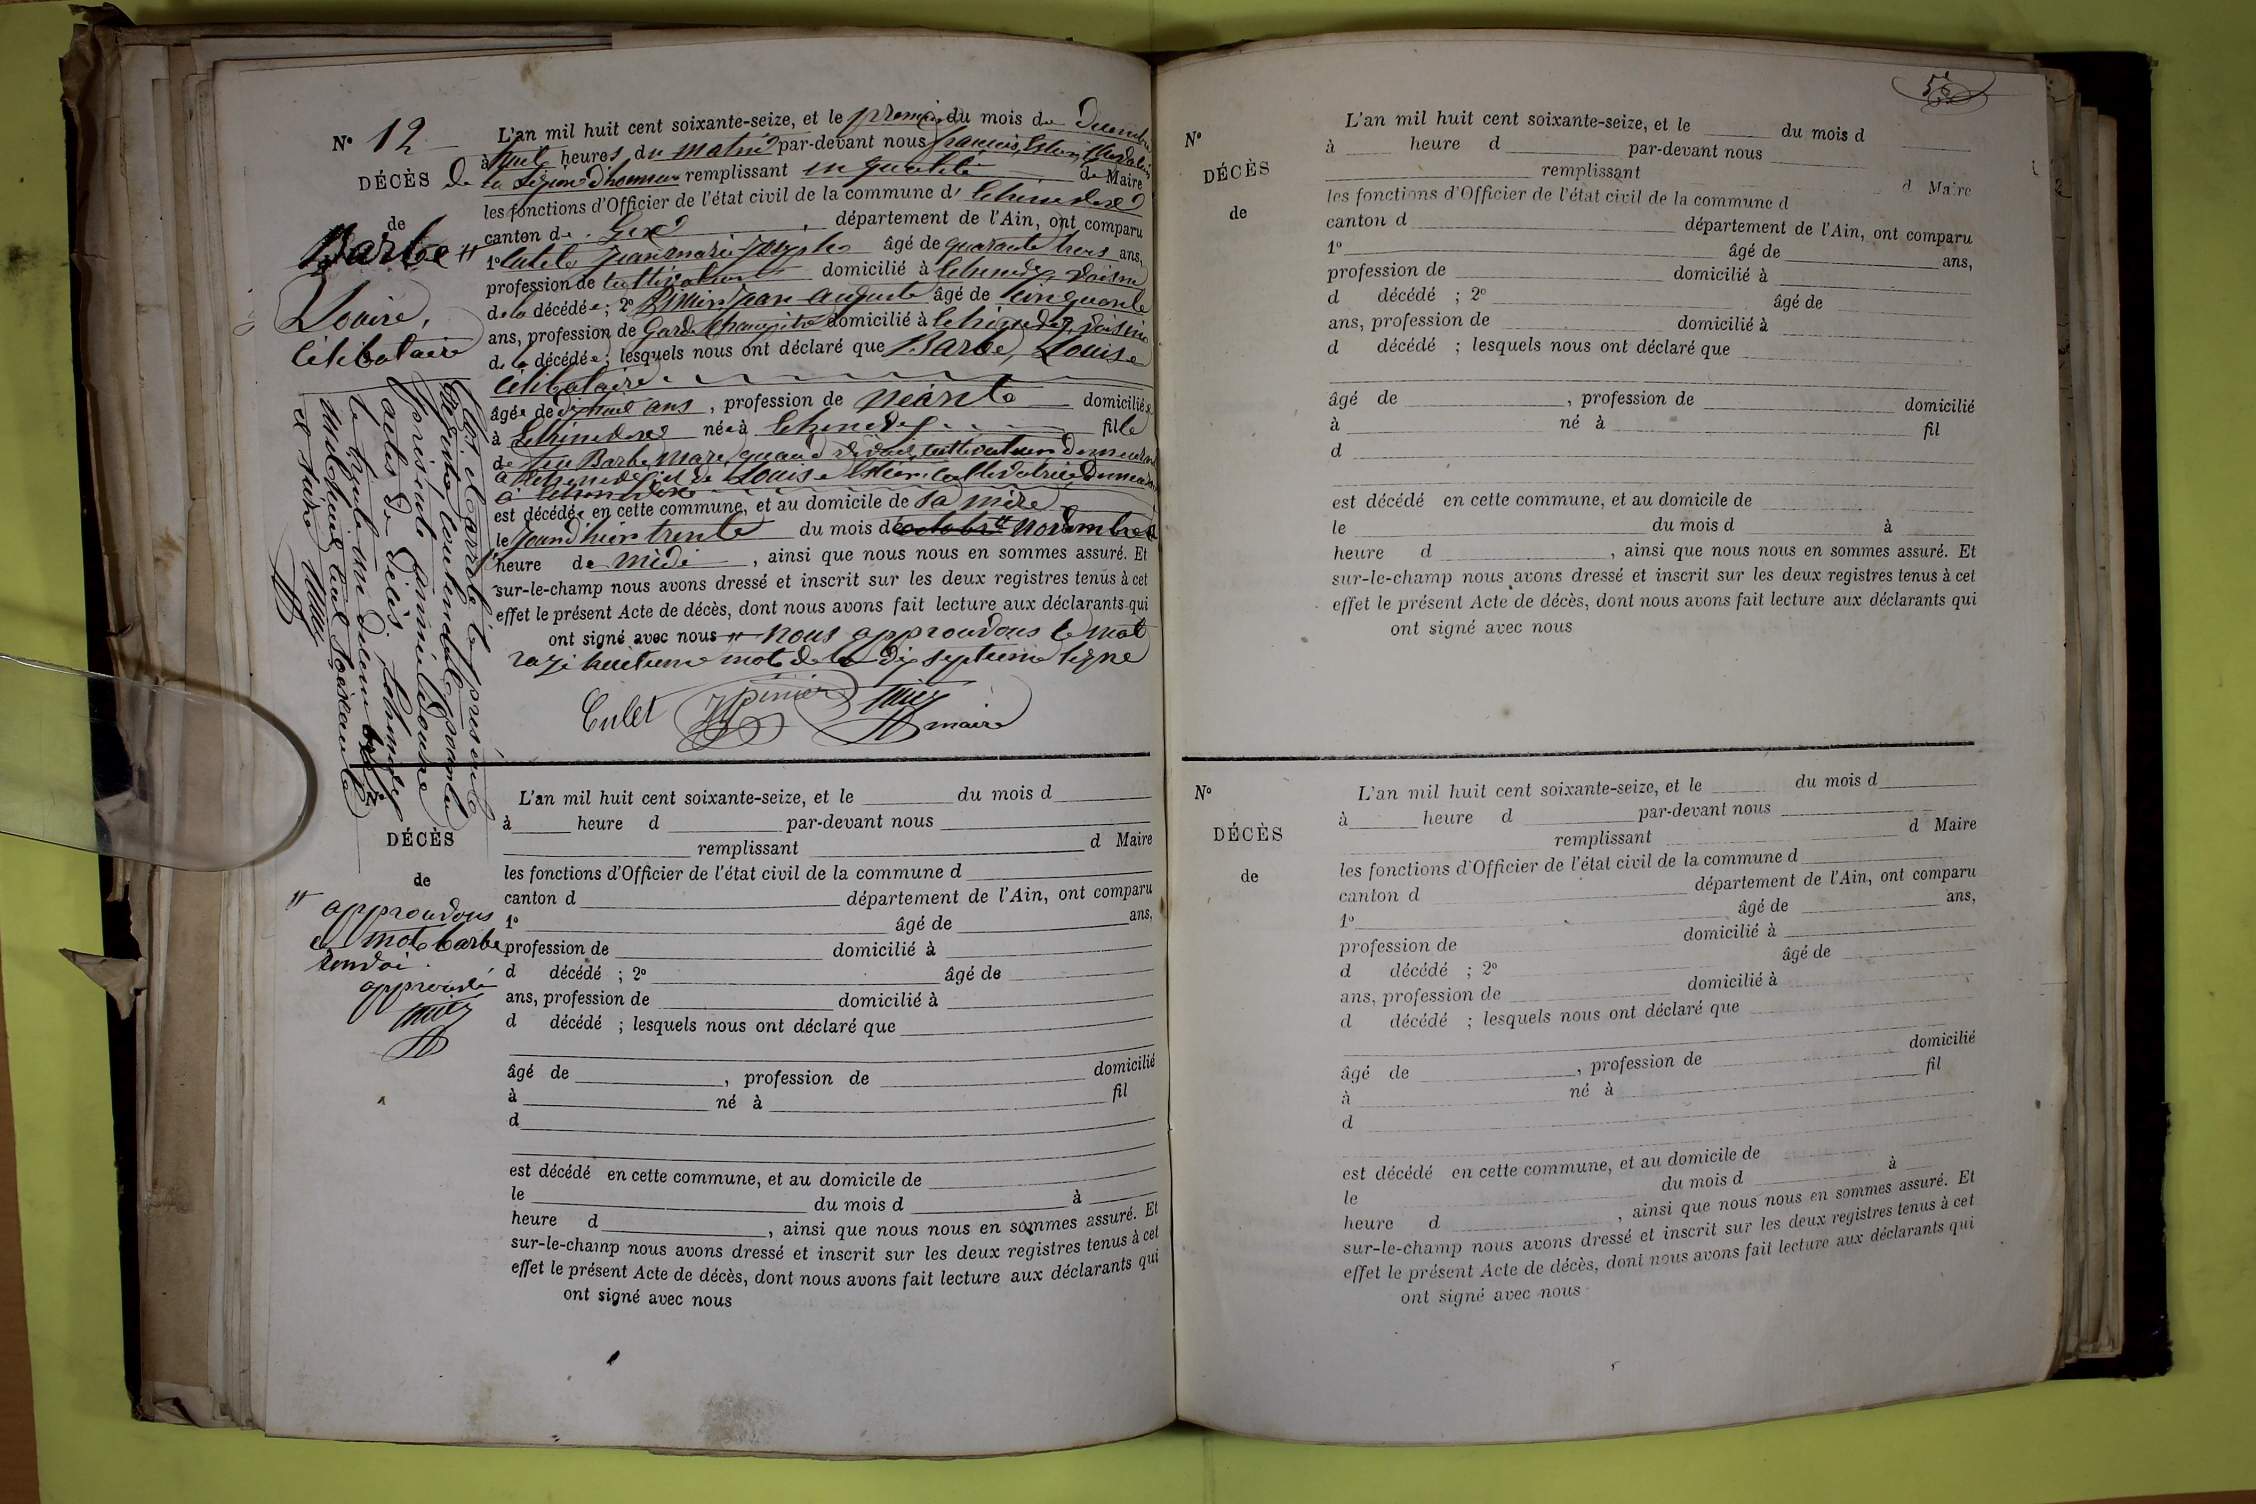 N° 12
DÉCÈS
de
Barbe #
Louise,
Célibataire
L'an mil huit cent soixante-seize, et le premier du mois de Décembre
à huit heures du matin par-devant nous françois
de la Légion d'honneur remplissant en qualité de Maire
les fonctions d'Officier de l'état civil de la commune d'Echenevex
canton de Gex, département de l'Ain, ont comparu
1° Culet Jean marie Joseph âgé de quarante trois ans,
profession de cultivateur domicilié à Echenevex, voisin
de la décédée; 2° jean auguste âgé de cinquante
ans, profession de Garde Champêtre domicilié à Echenevex, voisin
de la décédée; lesquels nous ont déclaré que Barbe, Louise
Célibataire
âgée de dix huit ans, profession de néante domiciliée
à Echenevex née à Echenevex fille
de feu Barbe, Marc, quand vivait cultivateur Demeurant
à Echenevex et de Louise cultivatrice Demeurant
à Echenevex
est décédée en cette commune, et au domicile de Sa mère
le jour d'hier trente du mois de octobre # novembre à
heure de midi, ainsi que nous nous en sommes assuré. Et
sur-le-champ nous avons dressé et inscrit sur les deux registres tenus à cet
effet le présent Acte de décès, dont nous avons fait lecture aux déclarants qui
ont signé avec nous # nous approuvons le mot
rayé huitieme mot de la dix septieme ligne
Culet
maire
Clos et arrêté le présent
registre contenant pour la
présente année Douze
actes de décès. Echenevex
le trente un décembre
mil huit cent Soixante
et Seize
DÉCÈS
de
# approuvons
le mot barbe
renvoi.
approuvé
L'an mil huit cent soixante-seize, et le du mois d
à heure d par-devant nous
remplissant d Maire
les fonctions d'Officier de l'état civil de la commune d
canton d département de l'Ain, ont comparu
1° âgé de ans,
profession de domicilié à
d décédé ; 2° âgé de
ans, profession de domicilié à
d décédé ; lesquels nous ont déclaré que
âgé de , profession de domicilié
à né à fil
d
est décédé en cette commune, et au domicile de
le du mois d à
heure d , ainsi que nous nous en sommes assuré. Et
sur-le-champ nous avons dressé et inscrit sur les deux registres tenus à cet
effet le présent Acte de décès, dont nous avons fait lecture aux déclarants qui
ont signé avec nous
N°
DÉCÈS
de
L'an mil huit cent soixante-seize, et le du mois d
à heure d par-devant nous
remplissant d Maire
les fonctions d'Officier de l'état civil de la commune d
canton d département de l'Ain, ont comparu
1° âgé de ans,
profession de domicilié à
d décédé ; 2° âgé de
ans, profession de domicilié à
d décédé ; lesquels nous ont déclaré que
âgé de , profession de domicilié
à né à fil
d
est décédé en cette commune, et au domicile de
le du mois d à
heure d , ainsi que nous nous en sommes assuré. Et
sur-le-champ nous avons dressé et inscrit sur les deux registres tenus à cet
effet le présent Acte de décès, dont nous avons fait lecture aux déclarants qui
ont signé avec nous
N°
DÉCÈS
de
L'an mil huit cent soixante-seize, et le du mois d
à heure d par-devant nous
remplissant d Maire
les fonctions d'Officier de l'état civil de la commune d
canton d département de l'Ain, ont comparu
1° âgé de ans,
profession de domicilié à
d décédé ; 2° âgé de
ans, profession de domicilié à
d décédé ; lesquels nous ont déclaré que
âgé de , profession de domicilié
à né à fil
d
est décédé en cette commune, et au domicile de
le du mois d à
heure d , ainsi que nous nous en sommes assuré. Et
sur-le-champ nous avons dressé et inscrit sur les deux registres tenus à cet
effet le présent Acte de décès, dont nous avons fait lecture aux déclarants qui
ont signé avec nous